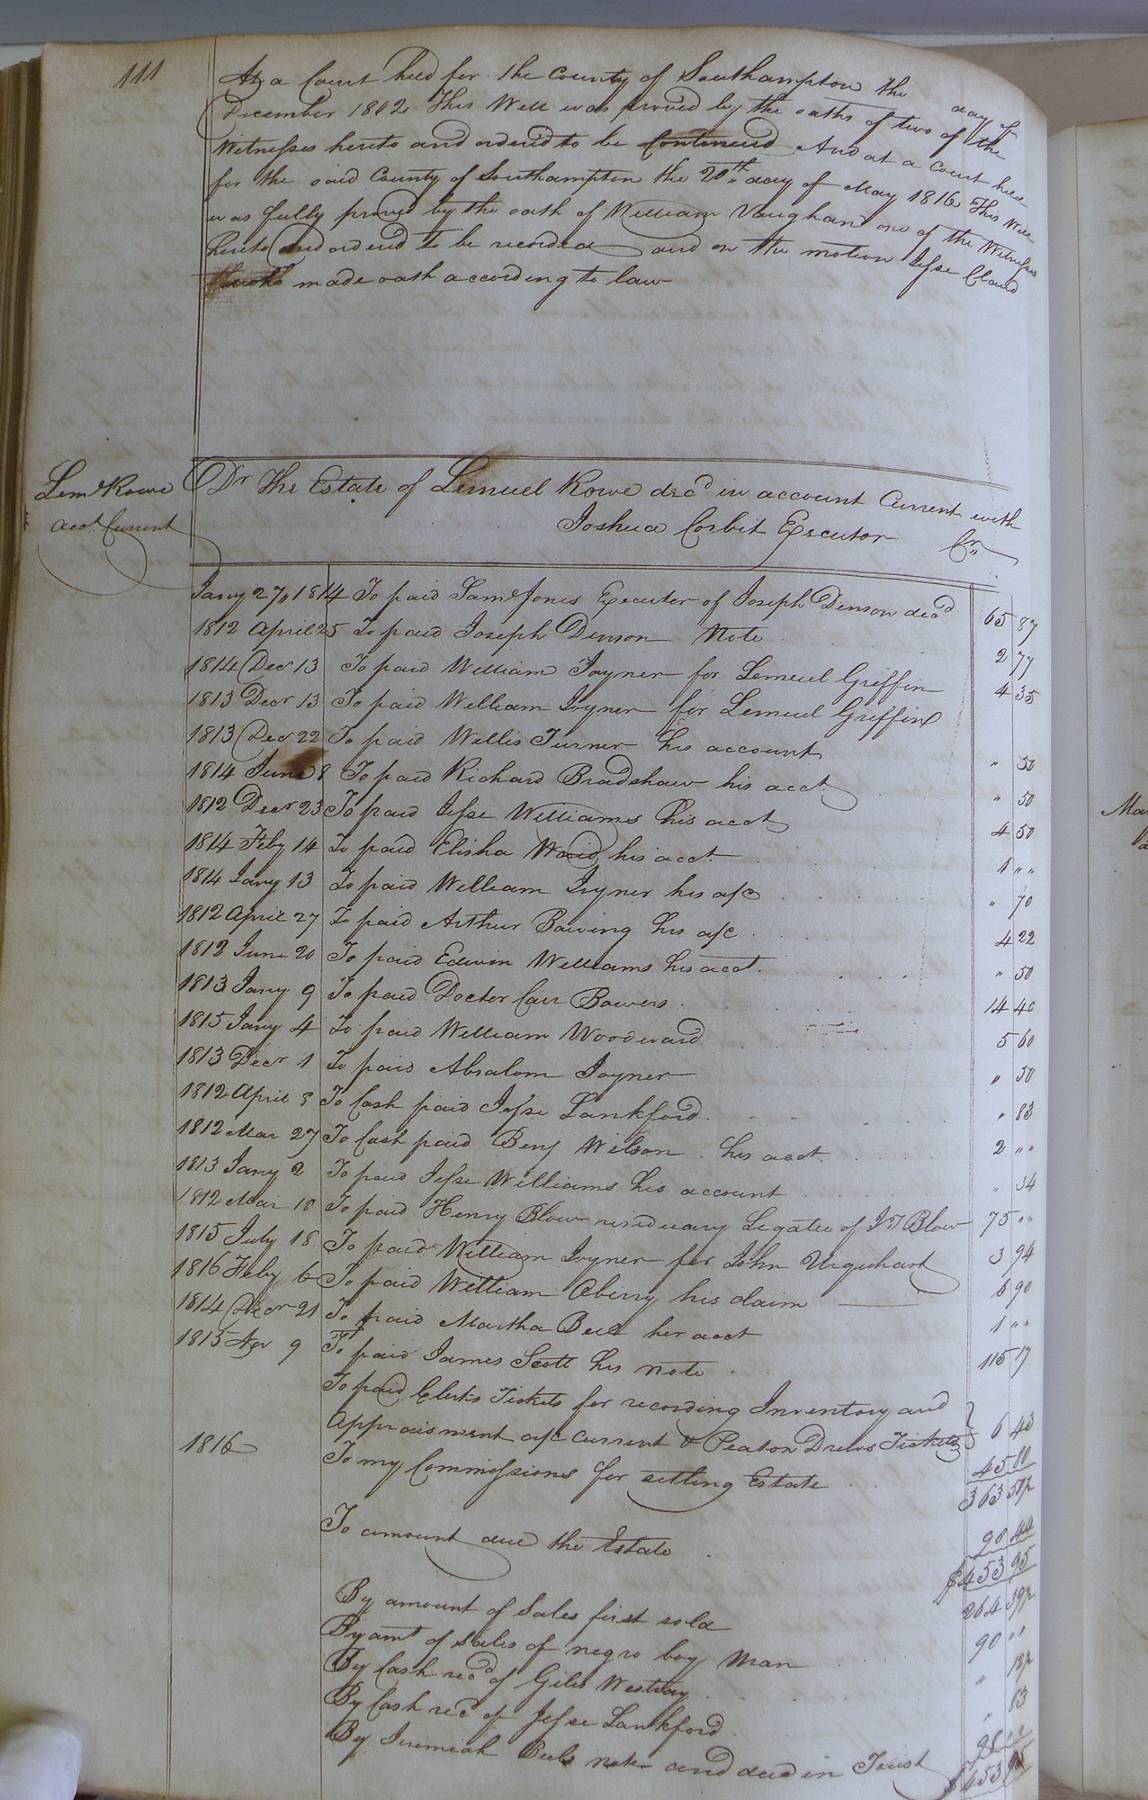 111
At a Court held for the County of Southampton the day of
December 1812 This Will was proved by the oaths of two of the
Witnesses hereto and ordered to be Continued And at a Court held
for the said County of Southampton the 20th day of May 1816 This Will
was fully proved by the oath of William Vaughan one of the Witnesses
hereto and ordered to be recorded and on the motion Jesse Claud
made oath according to law
Leml Rowe
acct Current
Dr The Estate of Lemuel Rowe decd in account Current with
Joshua Corbit Executor Cr
Jany 27, 1814 To paid Saml Jones Executor of Joseph Denson decd 65 87
1812 April 25 To paid Joseph Denson Note 2 77
1814 Decr 13 To paid William Joyner for Lemuel Griffin 4 35
1813 Decr 13 To paid William Joyner for Lemuel Griffin
1813 Decr 22 To paid Willis Turner his account " 50
1814 June 8 To paid Richard Bradshaw his acct " 50
1812 Decr 23 To paid Jesse Williams his acct 4 50
1814 Feby 14 To paid Elisha his acct. 1 " "
1814 Jany 13 To paid William Joyner his a/c " 70
1812 April 27 To paid Arthur Bowing his a/c 4 22
1812 June 20 To paid Edwin Williams his acct. " 50
1813 Jany 9 To paid Doctor Carr Bowers 14 40
1815 Jany 4 To paid William Woodward 5 60
1813 Decr 1 To paid Absalom Joyner " 50
1812 April 8 To Cash paid Jesse Lankford " 83
1812 Mar 27 To Cash paid Benj Wilson his acct. 2 " "
1813 Jany 2 To paid Jesse Williams his account " 34
1812 Mar 18 To paid Henry Blow residuary Legatee of Blow 75 " "
1815 July 18 To paid William Joyner for John Urquhart 3 94
1816 Feby 6 To paid William Oberry his claim 6 90
1814 Decr 21 To paid Martha Bell her acct 1 " "
1815 Apr 9 To paid James Scott his note 115 17
To paid Clerks Tickets for recording Inventory and
Appraisment a/c current & Peaton Drews Tickets 6 43
1816 To my Commissions for settling Estate
363
To amount due the Estate 90 44
$453 95
By amount of Sales first sold 264
By amt of sales of negro boy Man 90 " "
By Cash recd of Giles Westray "
By Cash recd of Jesse Lankford " 83
By Jeremiah Beels note and deed in Trust
$453 95